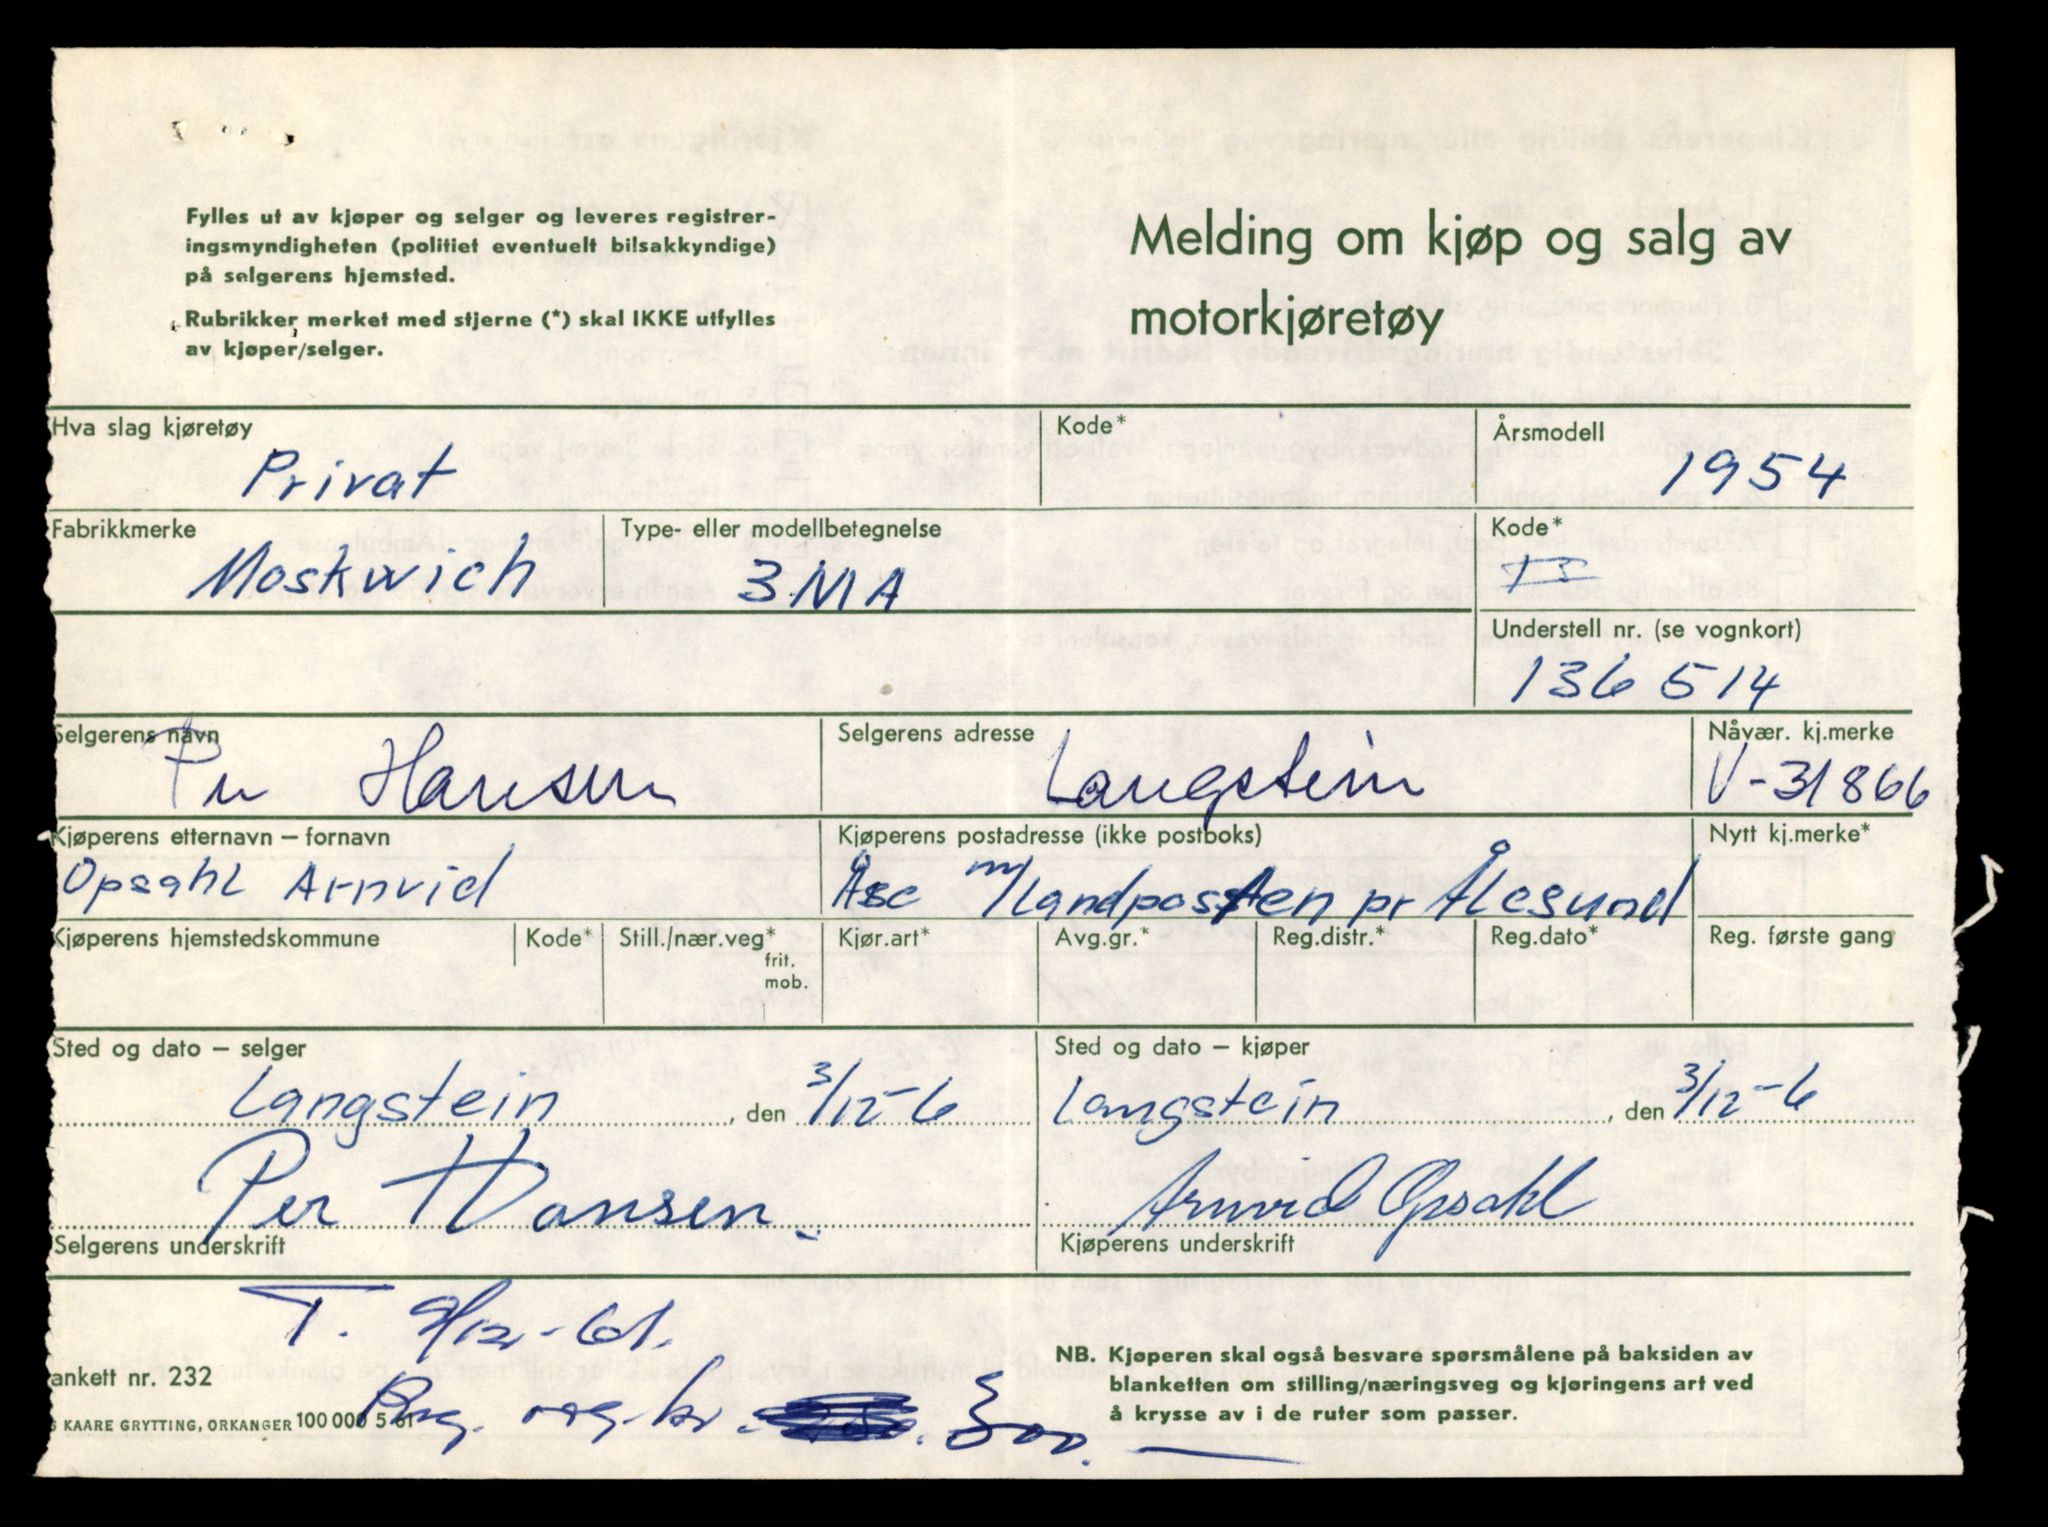 Fylles ut av kjøper og selger og leveres registrer-
ingsmyndigheten (politiet eventuelt bilsakkyndige)
på selgerens hjemsted.
Rubrikker merket med stjerne (*) skal IKKE utfylles
av kjøper/selger.
Melding om kjøp og salg av
motorkjøretøy
Hva slag kjøretøy Kode* Årsmodell
Privat 1954
Fabrikkmerke Type- eller modellbetegnelse Kode*
Moskwich 3 MA
Understell nr. (se vognkort)
136 514
Selgerens navn Selgerens adresse Nåvær. kj.merke
Per Hansen Langstein V-31866
Kjøperens etternavn – fornavn Kjøperens postadresse (ikke postboks) Nytt kj.merke*
Opsahl Arnvid Åse m/Landposten pr Ålesund
Kjøperens hjemstedskommune Kode* Still./nær.veg* Kjør.art* Avg.gr.* Reg.distr.* Reg.dato* Reg. første gang
frit.
mob.
Sted og dato – selger Sted og dato – kjøper
Langstein, den 3/12-6 Langstein, den 3/12-6
Per Hansen. Arnvid Opsahl
Selgerens underskrift Kjøperens underskrift
T. 9/12-61.
NB. Kjøperen skal også besvare spørsmålene på baksiden av
blanketten om stilling/næringsveg og kjøringens art ved
å krysse av i de ruter som passer.
ankett nr. 232
KAARE GRYTTING, ORKANGER 100 000 5 61
kr. 300.—